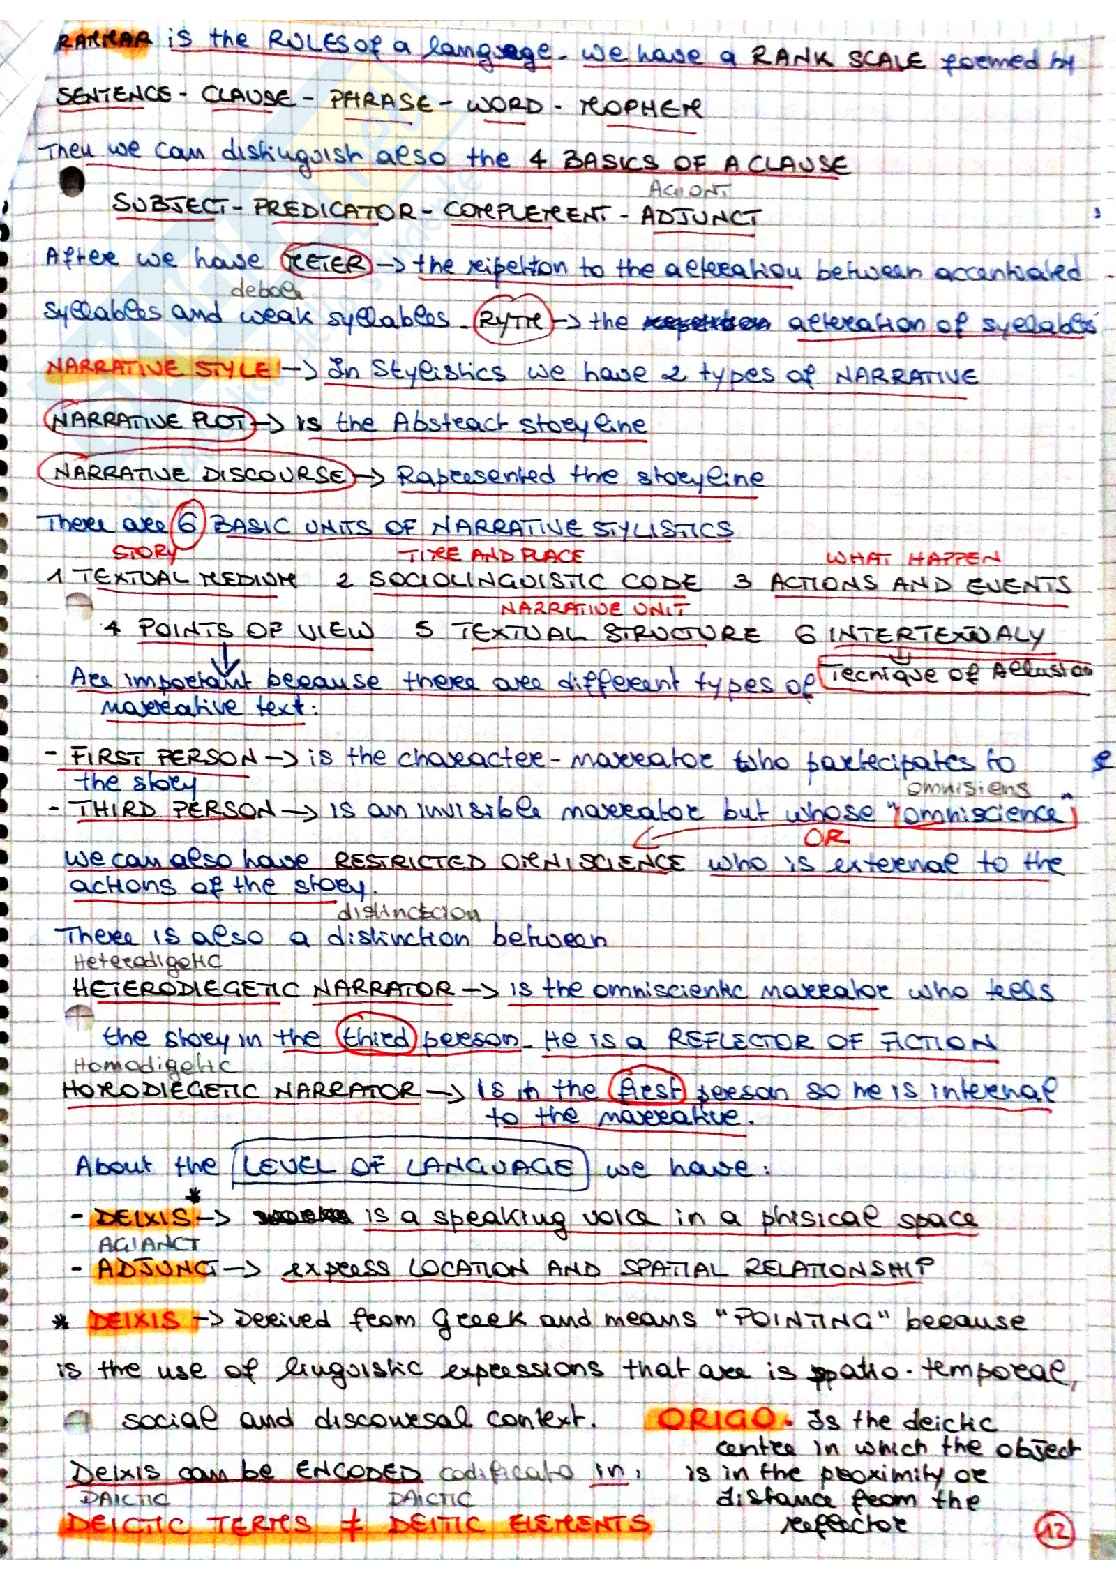 RAMMAR is the RULES of a language. we have a RANK SCALE formed by
SENTENCE - CLAUSE - PHRASE - WORD - MOPHEM
Then we can distinguish also the 4 BASICS OF A CLAUSE
SUBJECT - PREDICATOR - COMPLEMENT - ADJUNCT
After we have METER → the reipetion to the alteration between accentuated
debole
syllables and weak syllables. RYTM → the alteration of syllables
NARRATIVE STYLE! → In Stylistics we have 2 types of NARRATIVE
NARRATIVE PLOT → is the Abstract storyline
NARRATIVE DISCOURSE → Rapresented the storyline
There are 6 BASIC UNITS OF NARRATIVE STYLISTICS
STORY TIME AND PLACE WHAT HAPPEN
1 TEXTUAL MEDIUM 2 SOCIOLINGUISTIC CODE 3 ACTIONS AND EVENTS
NARRATIVE UNIT
4 POINTS OF VIEW 5 TEXTUAL STRUCTURE 6 INTERTEXUALY
Are important because there are different types of Tecnique of Allusion
narrative text:
- FIRST PERSON → is the character-narrator who partecipates to
the story omnisiens
- THIRD PERSON → is an invisible narrator but whose "omniscience"
OR
we can also have RESTRICTED OMNISCIENCE who is external to the
actions of the story.
There is also a distinction between
Heterodigetic
HETERODIEGETIC NARRATOR → is the omniscientic narrator who tells
the story in the third person. He is a REFLECTOR OF FICTION
Homodigetic
HOMODIEGETIC NARRATOR → is in the first person so he is internal
to the narrative.
About the LEVEL OF LANGUAGE we have:
*
- DEIXIS → is a speaking voice in a phisical space
AGIANCT
- ADJUNCT → express LOCATION AND SPATIAL RELATIONSHIP
* DEIXIS → Derived from Greek and means "POINTING" because
is the use of linguistic expressions that are is spatio-temporal,
social and discoursal context.
Deixis can be ENCODED codificato in:
DAICTIC DAICTIC
DEICTIC TERMS ≠ DEITIC ELEMENTS
ORIGO. Is the deictic
centre in which the object
is in the proximity or
distance from the
reflector
12